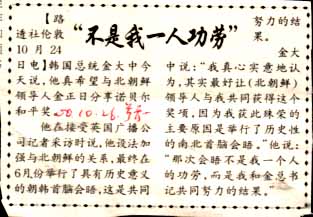 【路透社伦敦10月24日电】韩国总统金大中今
天说，他真希望与北朝鲜
领导人金正日分享诺贝尔
和平奖。
他在接受英国广播公
司记者采访时说，他设法加
强与北朝鲜的关系，最终在
6月份举行了具有历史意义
的朝韩首脑会晤，这是共同
“不是我一人功劳”
努力的结
果。
金大
中说：“我真心实意地认
为，其实最好让（北朝鲜）
领导人与我共同获得这个
奖项，因为我获此殊荣的
主要原因是举行了历史性
的南北首脑会晤。”他说：
“那次会晤不是我一个人
的功劳，而是我和金总书
记共同努力的结果。”